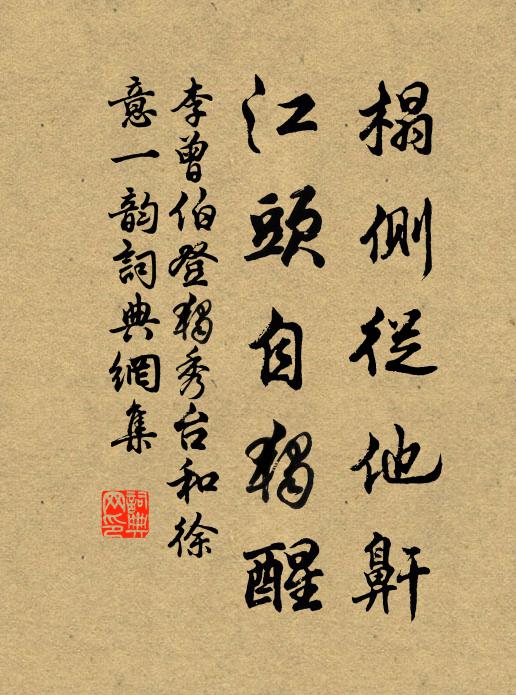 榻側從他鼾
江頭自獨醒
李曾伯登獨秀台和徐
意一韵詞典網集
詞典
网印